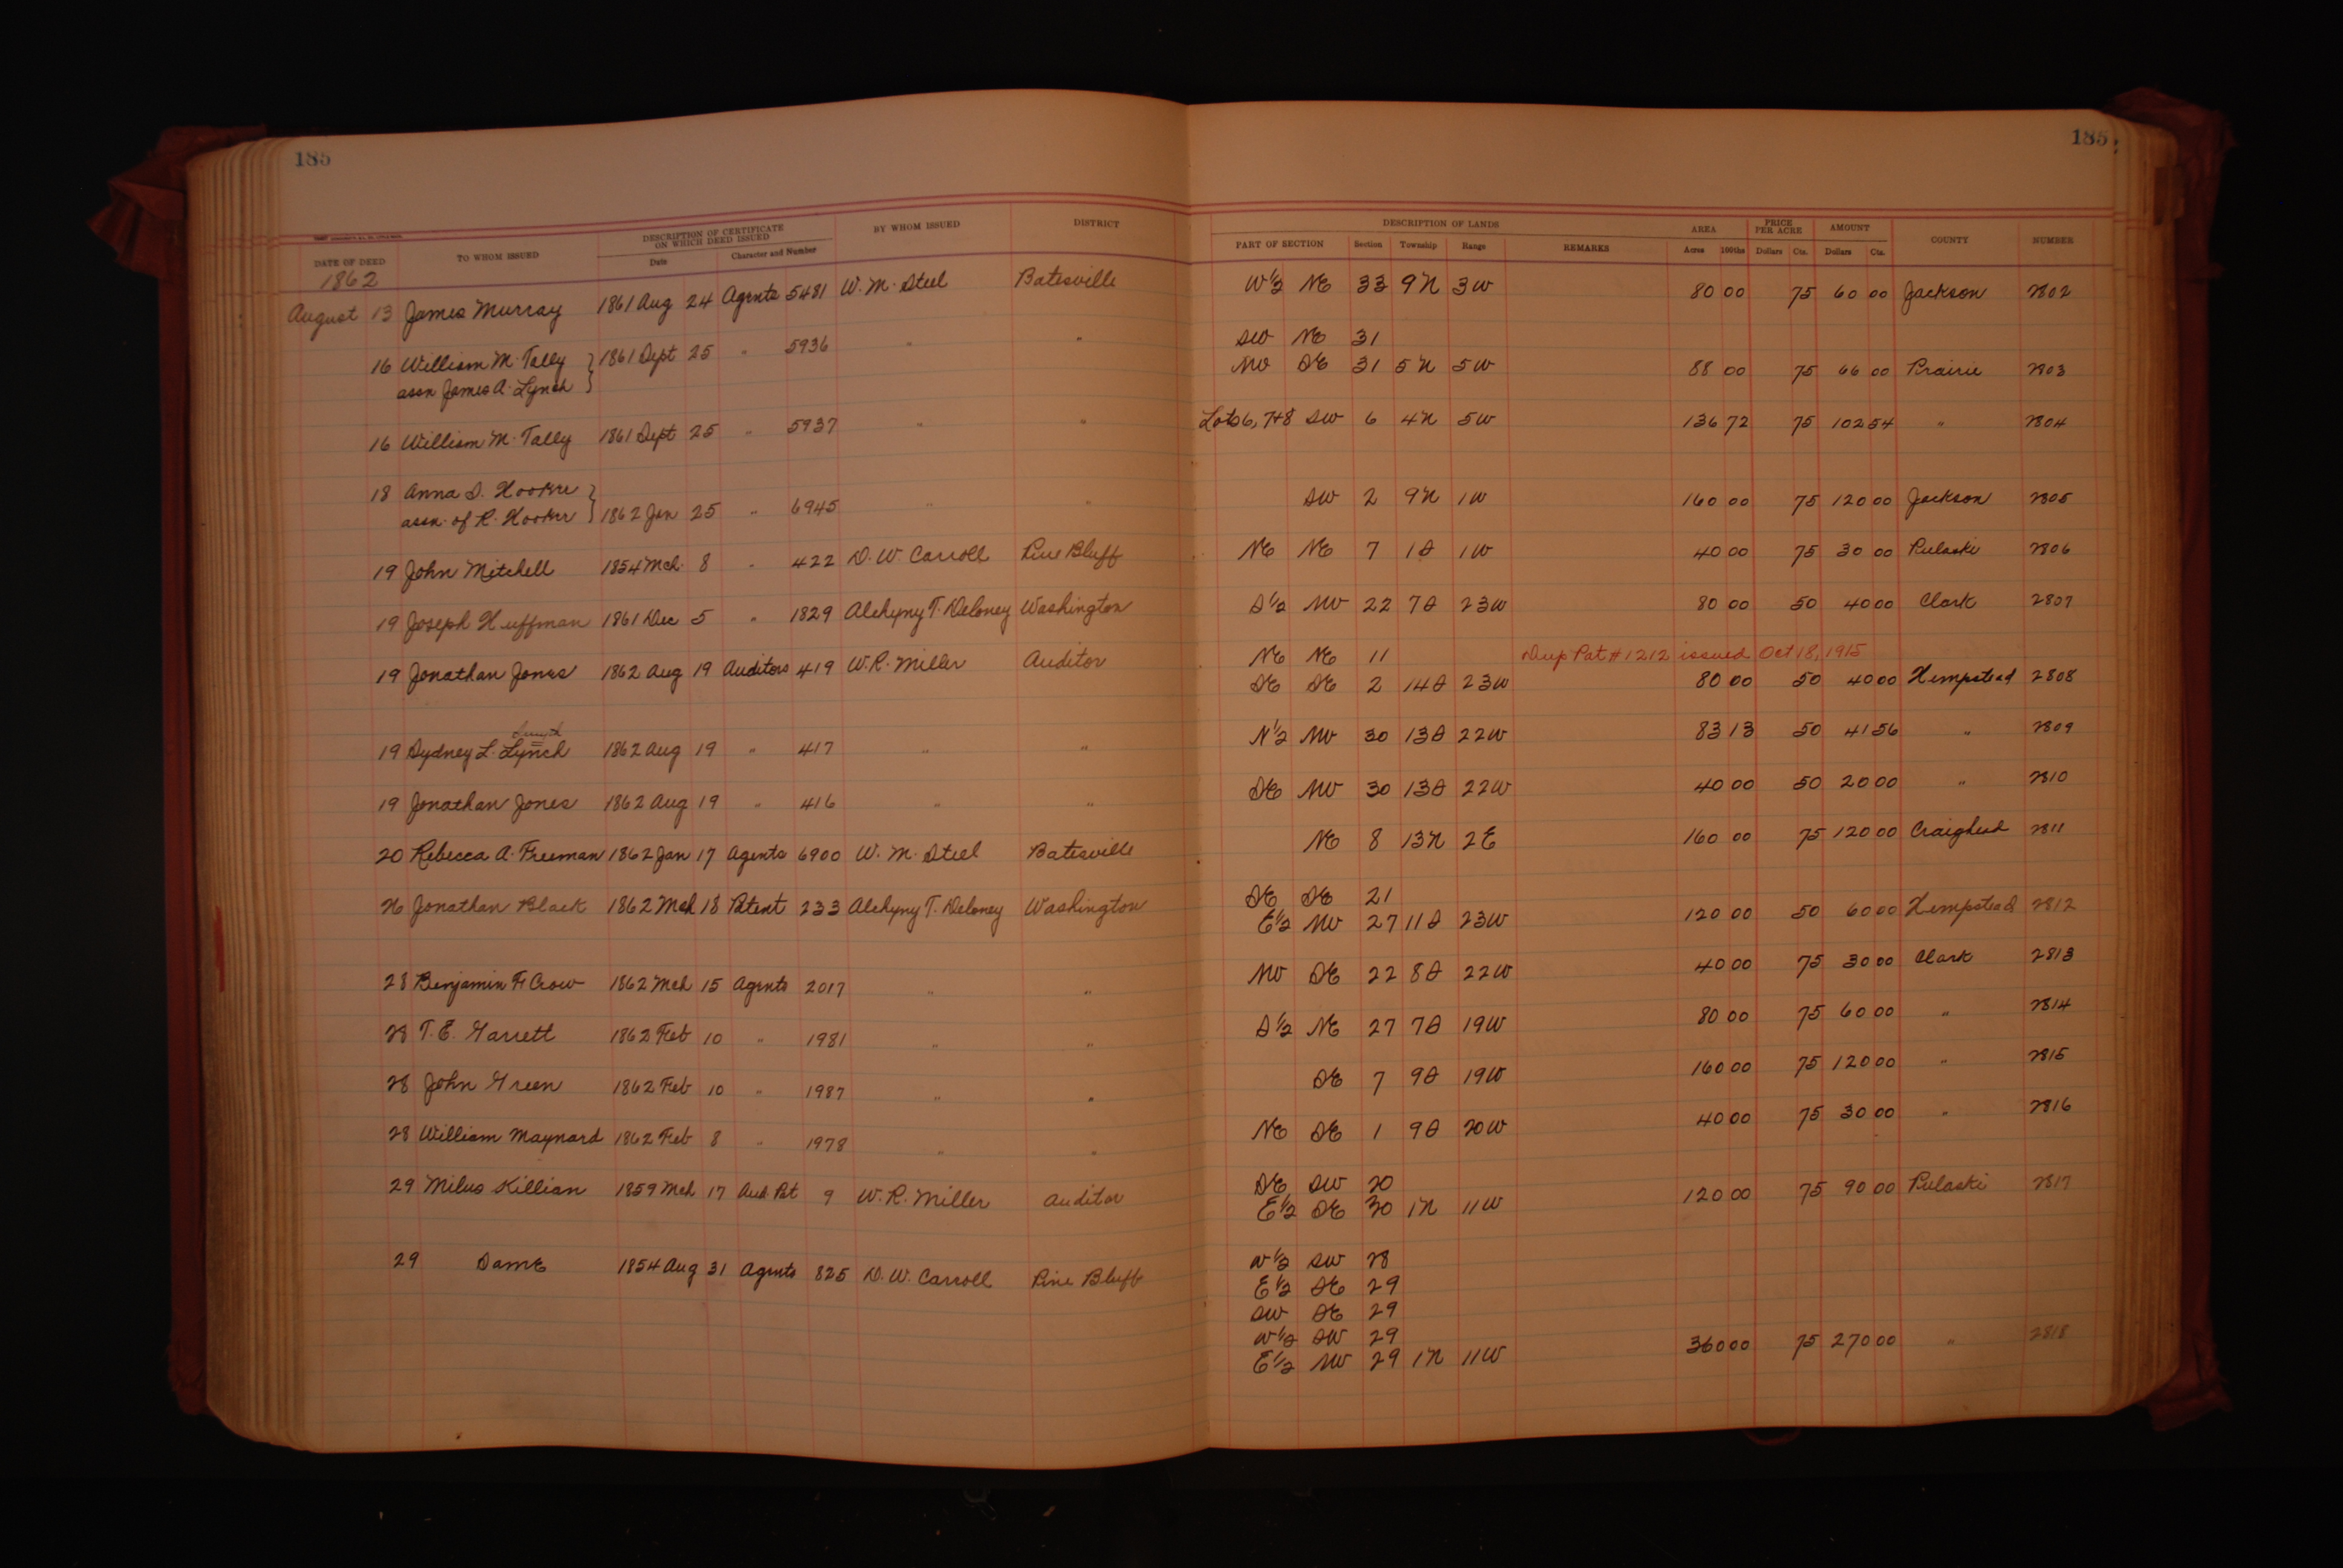 185 185
DATE OF DEED TO WHOM ISSUED DESCRIPTION OF CERTIFICATE ON WHICH DEED ISSUED Date Character and Number BY WHOM ISSUED DISTRICT DESCRIPTION OF LANDS PART OF SECTION Section Township Range REMARKS AREA Acres 100ths PRICE PER ACRE Dollars Cts. AMOUNT Dollars Cts. COUNTY NUMBER
1862
August 13 James Murray 1861 Aug 24 Agents 5481 W. M. Steel Batesville W½ NE 33 9N 3W 80 00 75 60 00 Jackson 2802
SW NE 31
16 William M. Tally 1861 Sept 25 " 5936 " " NW SE 31 5N 5W 88 00 75 66 00 Prairie 2803
assn James A. Lynch
16 William M. Tally 1861 Sept 25 " 5937 " " Lots 6, 7+8 SW 6 4N 5W 136 72 75 102 54 " 2804
18 Anna S. Hooker
assn. of R. Hooker 1862 Jan 25 " 6945 " " SW 2 9N 1W 160 00 75 120 00 Jackson 2805
19 John Mitchell 1854 Mch. 8 " 422 D. W. Carroll Pine Bluff NE NE 7 1S 1W 40 00 75 30 00 Pulaski 2806
19 Joseph Huffman 1861 Dec 5 " 1829 Alchyny T. Deloney Washington S½ NW 22 7S 23W 80 00 50 40 00 Clark 2807
NE NE 11 Dup Pat # 1212 issued Oct 18, 1915
19 Jonathan Jones 1862 Aug 19 Auditors 419 W. R. Miller Auditor SE SE 2 14S 23W 80 00 50 40 00 Hempstead 2808
19 Sydney L. Lynch 1862 Aug 19 " 417 " " N½ NW 30 13S 22W 83 13 50 41 56 " 2809
19 Jonathan Jones 1862 Aug 19 " 416 " " SE NW 30 13S 22W 40 00 50 20 00 " 2810
20 Rebecca A. Freeman 1862 Jan 17 Agents 6900 W. M. Steel Batesville NE 8 13N 2E 160 00 75 120 00 Craighead 2811
SE SE 21
26 Jonathan Black 1862 Mch 18 Patent 233 Alchyny T. Deloney Washington E½ NW 27 11S 23W 120 00 50 60 00 Hempstead 2812
28 Benjamin F. Crow 1862 Mch 15 Agents 2017 " " NW SE 22 8S 22W 40 00 75 30 00 Clark 2813
28 T. E. Garrett 1862 Feb 10 " 1981 " " S½ NE 27 7S 19W 80 00 75 60 00 " 2814
28 John Green 1862 Feb 10 " 1987 " " SE 7 9S 19W 160 00 75 120 00 " 2815
28 William Maynard 1862 Feb 8 " 1978 " " NE SE 1 9S 20W 40 00 75 30 00 " 2816
SE SW 20
29 Milus Killian 1859 Mch 17 Aud. Pat 9 W. R. Miller Auditor E½ SE 30 1N 11W 120 00 75 90 00 Pulaski 2817
29 Same 1854 Aug 31 Agents 825 D. W. Carroll Pine Bluff W½ SW 28
E½ SE 29
SW SE 29
W½ SW 29
E½ NW 29 1N 11W 360 00 75 270 00 " 2818